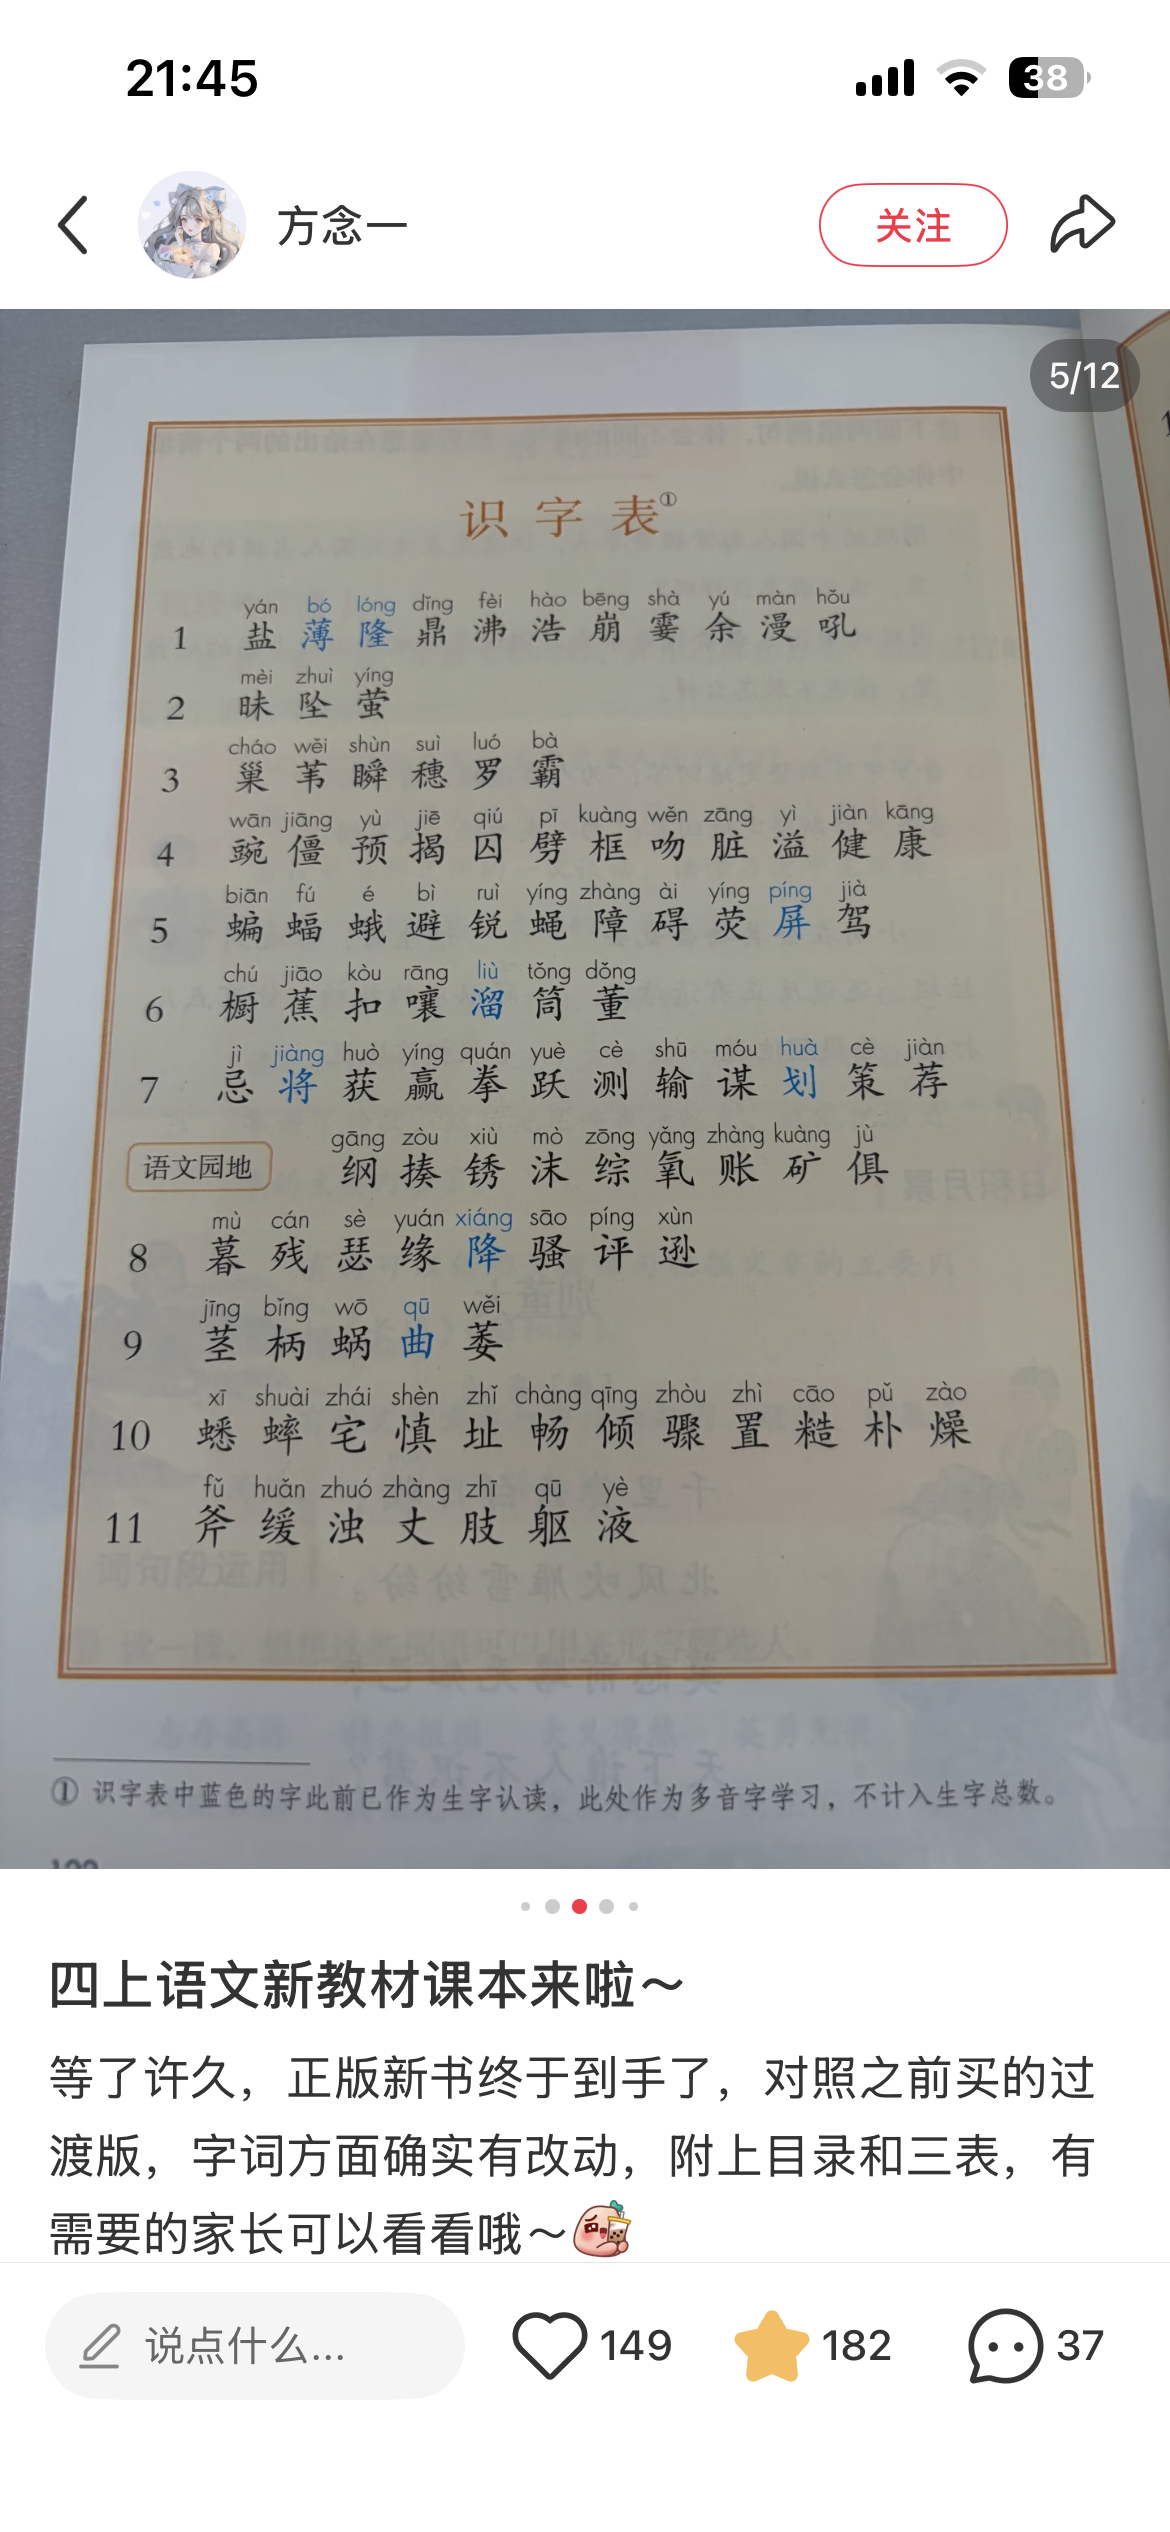 21:45
38
方念一
关注
5/12
识字表①
yán bó lóng dǐng fèi hào bēng shà yú màn hǒu
1 盐 薄 隆 鼎 沸 浩 崩 霎 余 漫 吼
mèi zhuì yíng
2 昧 坠 萤
cháo wěi shùn suì luó bà
3 巢 苇 瞬 穗 罗 霸
wān jiāng yù jiē qiú pī kuàng wěn zāng yì jiàn kāng
4 豌 僵 预 揭 囚 劈 框 吻 脏 溢 健 康
biān fú é bì ruì yíng zhàng ài yíng píng jià
5 蝙 蝠 蛾 避 锐 蝇 障 碍 荧 屏 驾
chú jiāo kòu rāng liù tǒng dǒng
6 橱 蕉 扣 嚷 溜 筒 董
jì jiàng huò yíng quán yuè cè shū móu huà cè jiàn
7 忌 将 获 赢 拳 跃 测 输 谋 划 策 荐
gāng zòu xiù mò zōng yǎng zhàng kuàng jù
语文园地 纲 揍 锈 沫 综 氧 账 矿 俱
mù cán sè yuán xiáng sāo píng xùn
8 暮 残 瑟 缘 降 骚 评 逊
jīng bǐng wō qū wěi
9 茎 柄 蜗 曲 萎
xī shuài zhái shèn zhǐ chàng qīng zhòu zhì cāo pǔ zào
10 蟋 蟀 宅 慎 址 畅 倾 骤 置 糙 朴 燥
fǔ huǎn zhuó zhàng zhī qū yè
11 斧 缓 浊 丈 肢 躯 液
① 识字表中蓝色的字此前已作为生字认读，此处作为多音字学习，不计入生字总数。
四上语文新教材课本来啦～
等了许久，正版新书终于到手了，对照之前买的过
渡版，字词方面确实有改动，附上目录和三表，有
需要的家长可以看看哦～
说点什么...
149
182
37